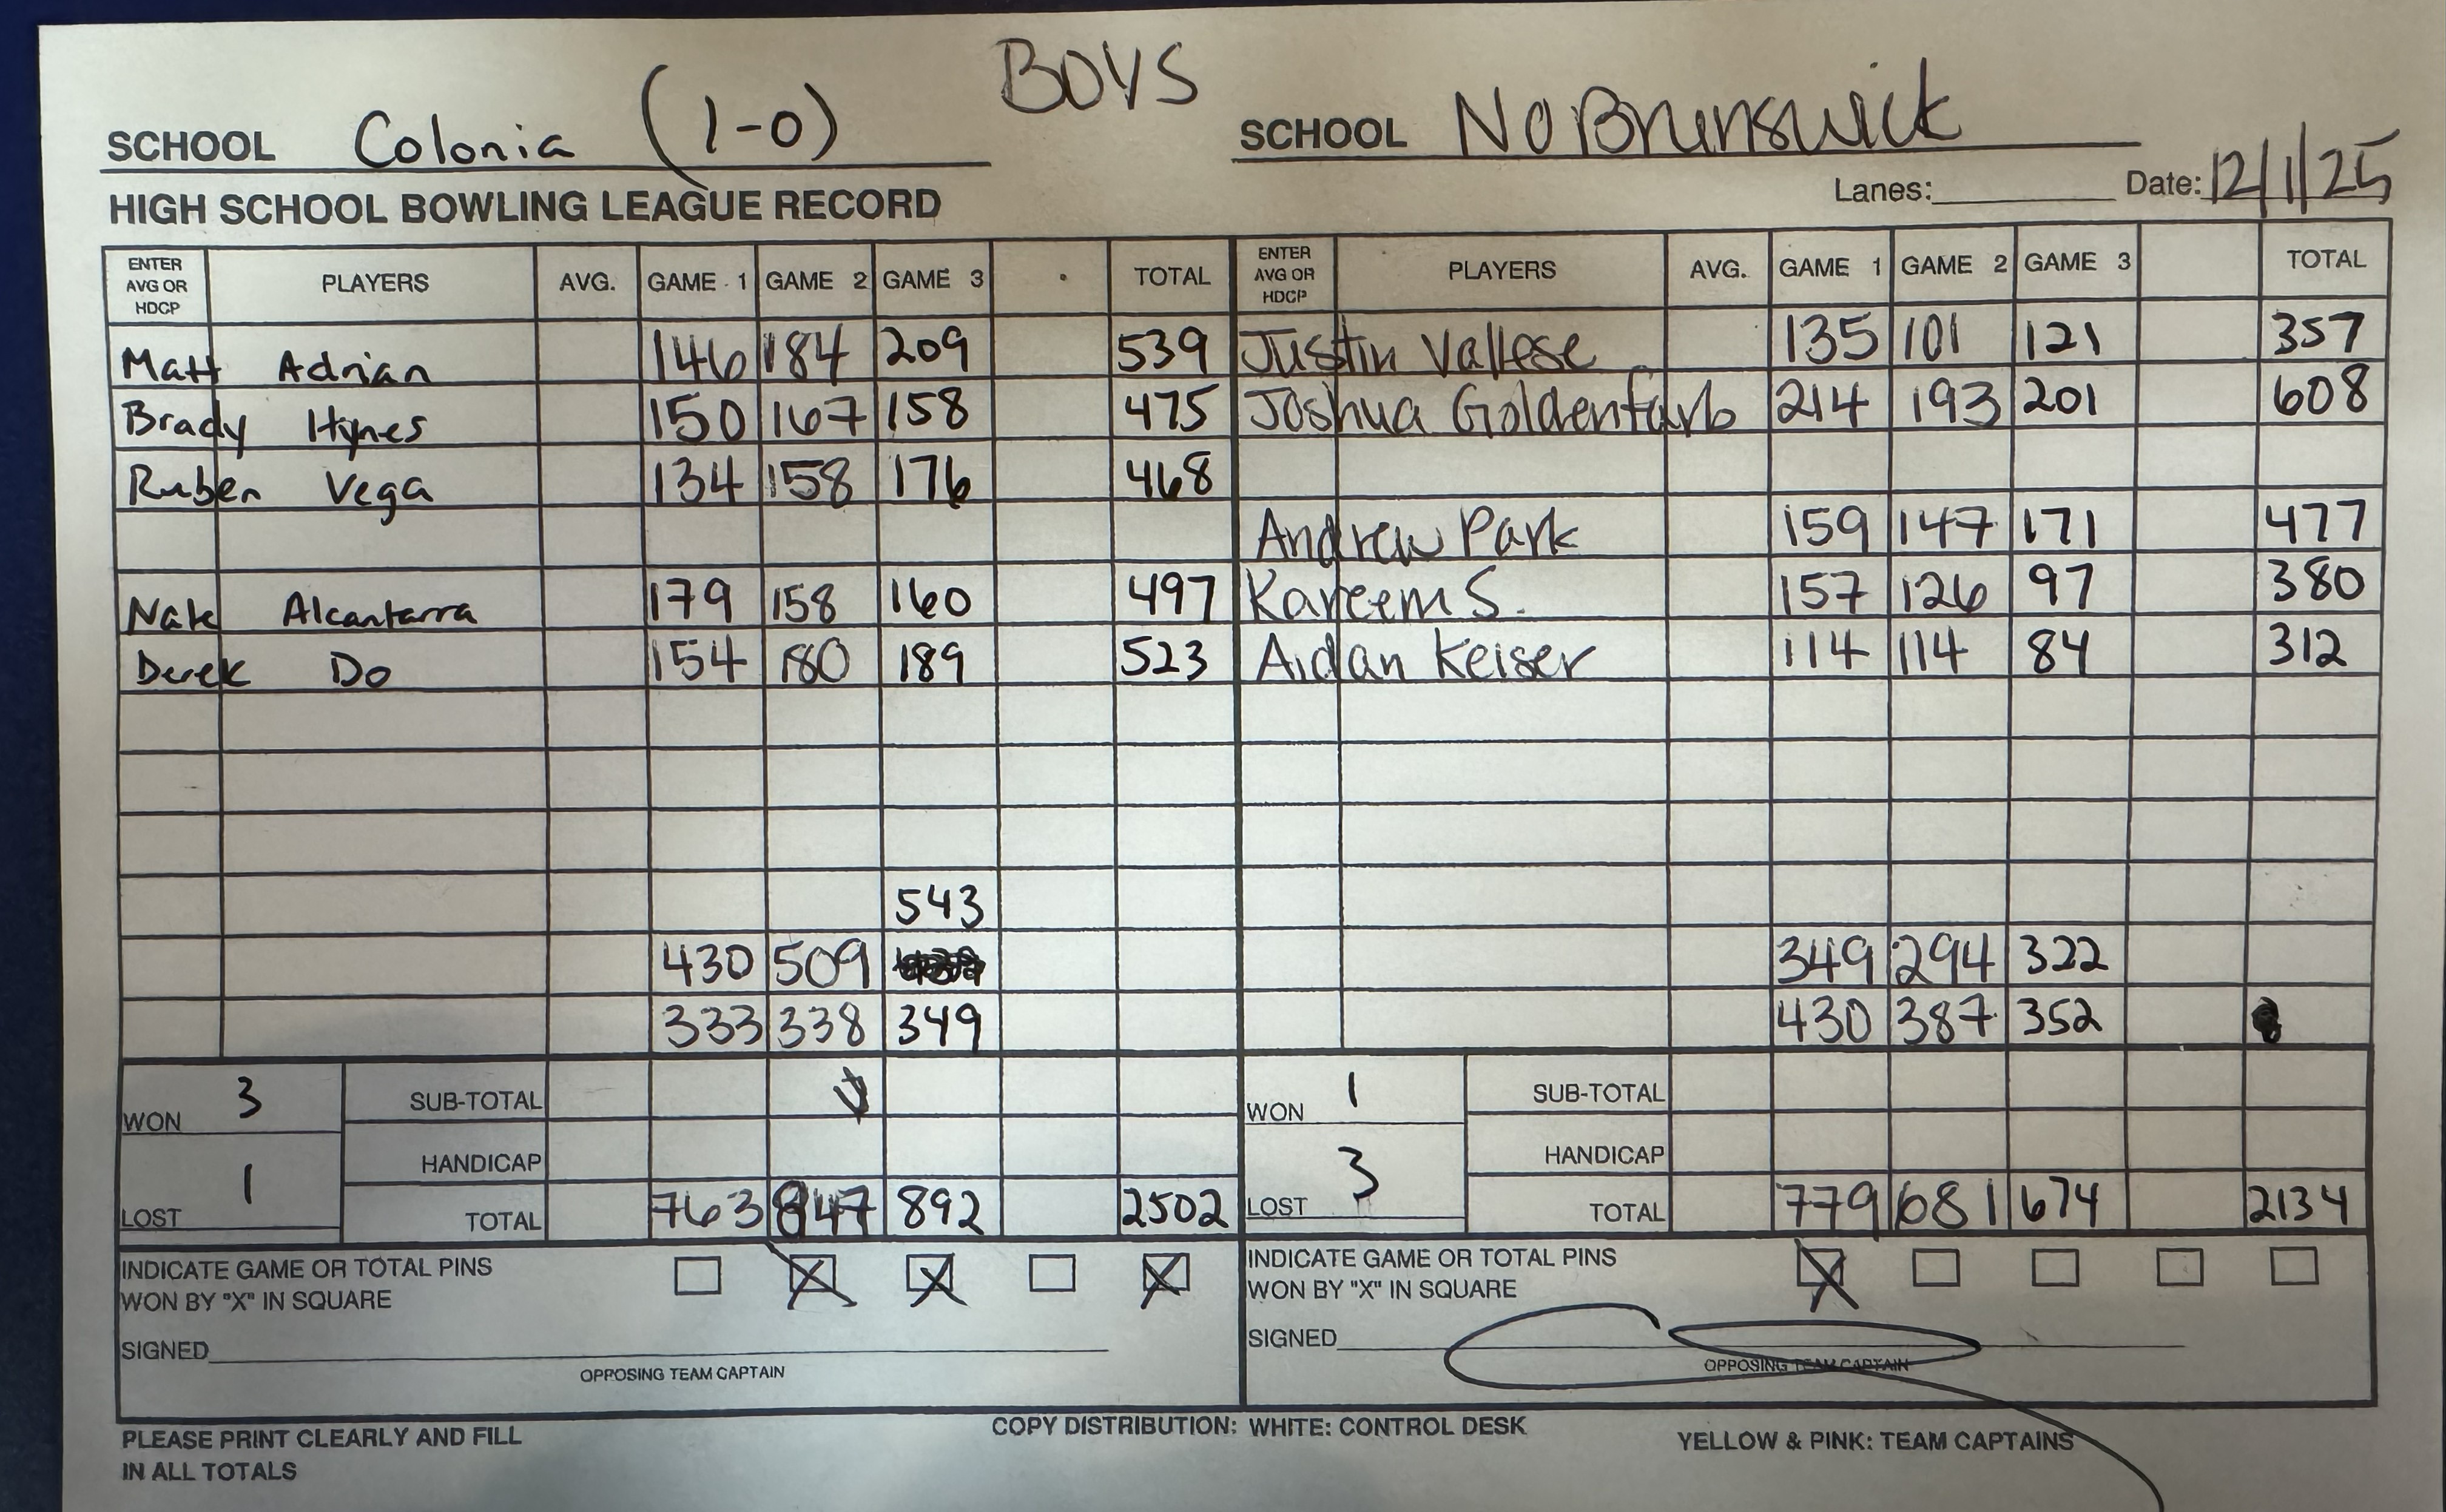 BOYS
SCHOOL Colonia (1-0) SCHOOL No Brunswick
HIGH SCHOOL BOWLING LEAGUE RECORD Lanes: Date: 12/1/25
ENTER AVG OR HDCP PLAYERS AVG. GAME 1 GAME 2 GAME 3 TOTAL ENTER AVG OR HDCP PLAYERS AVG. GAME 1 GAME 2 GAME 3 TOTAL
Matt Adrian 146 184 209 539 Justin Vallese 135 101 121 357
Brady Hynes 150 167 158 475 Joshua Goldenfarb 214 193 201 608
Ruben Vega 134 158 176 468
Andrew Park 159 147 171 477
Nate Alcantarra 179 158 160 497 Kareem S. 157 126 97 380
Derek Do 154 180 189 523 Aidan Keiser 114 114 84 312
543
430 509 349 294 322
333 338 349 430 387 352
WON 3 SUB-TOTAL WON 1 SUB-TOTAL
HANDICAP HANDICAP
LOST 1 TOTAL 763 847 892 2502 LOST 3 TOTAL 779 681 674 2134
INDICATE GAME OR TOTAL PINS INDICATE GAME OR TOTAL PINS
WON BY "X" IN SQUARE WON BY "X" IN SQUARE
SIGNED SIGNED
OPPOSING TEAM CAPTAIN OPPOSING TEAM CAPTAIN
PLEASE PRINT CLEARLY AND FILL COPY DISTRIBUTION: WHITE: CONTROL DESK YELLOW & PINK: TEAM CAPTAINS
IN ALL TOTALS